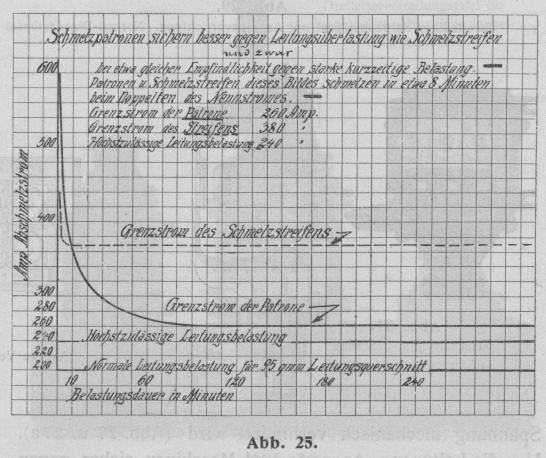 Schmelzpatronen sichern besser gegen Leitungsüberlastung wie Schmelzstreifen
und zwar
bei etwa gleicher Empfindlichkeit gegen starke kurzzeitige Belastung.
Patronen u. Schmelzstreifen dieses Bildes schmelzen in etwa 8 Minuten
beim Doppelten des Nennstromes.
Grenzstrom der Patrone 260 Amp.
Grenzstrom des Streifens 380 "
Höchstzulässige Leitungsbelastung 240 "
600
500
400
300
280
260
240
220
200
Amp. Abschmelzstrom
Grenzstrom des Schmelzstreifens
Grenzstrom der Patrone
Höchstzulässige Leitungsbelastung
Normale Leitungsbelastung für 95 qmm Leitungsquerschnitt
10 60 120 180 240
Belastungsdauer in Minuten
Abb. 25.